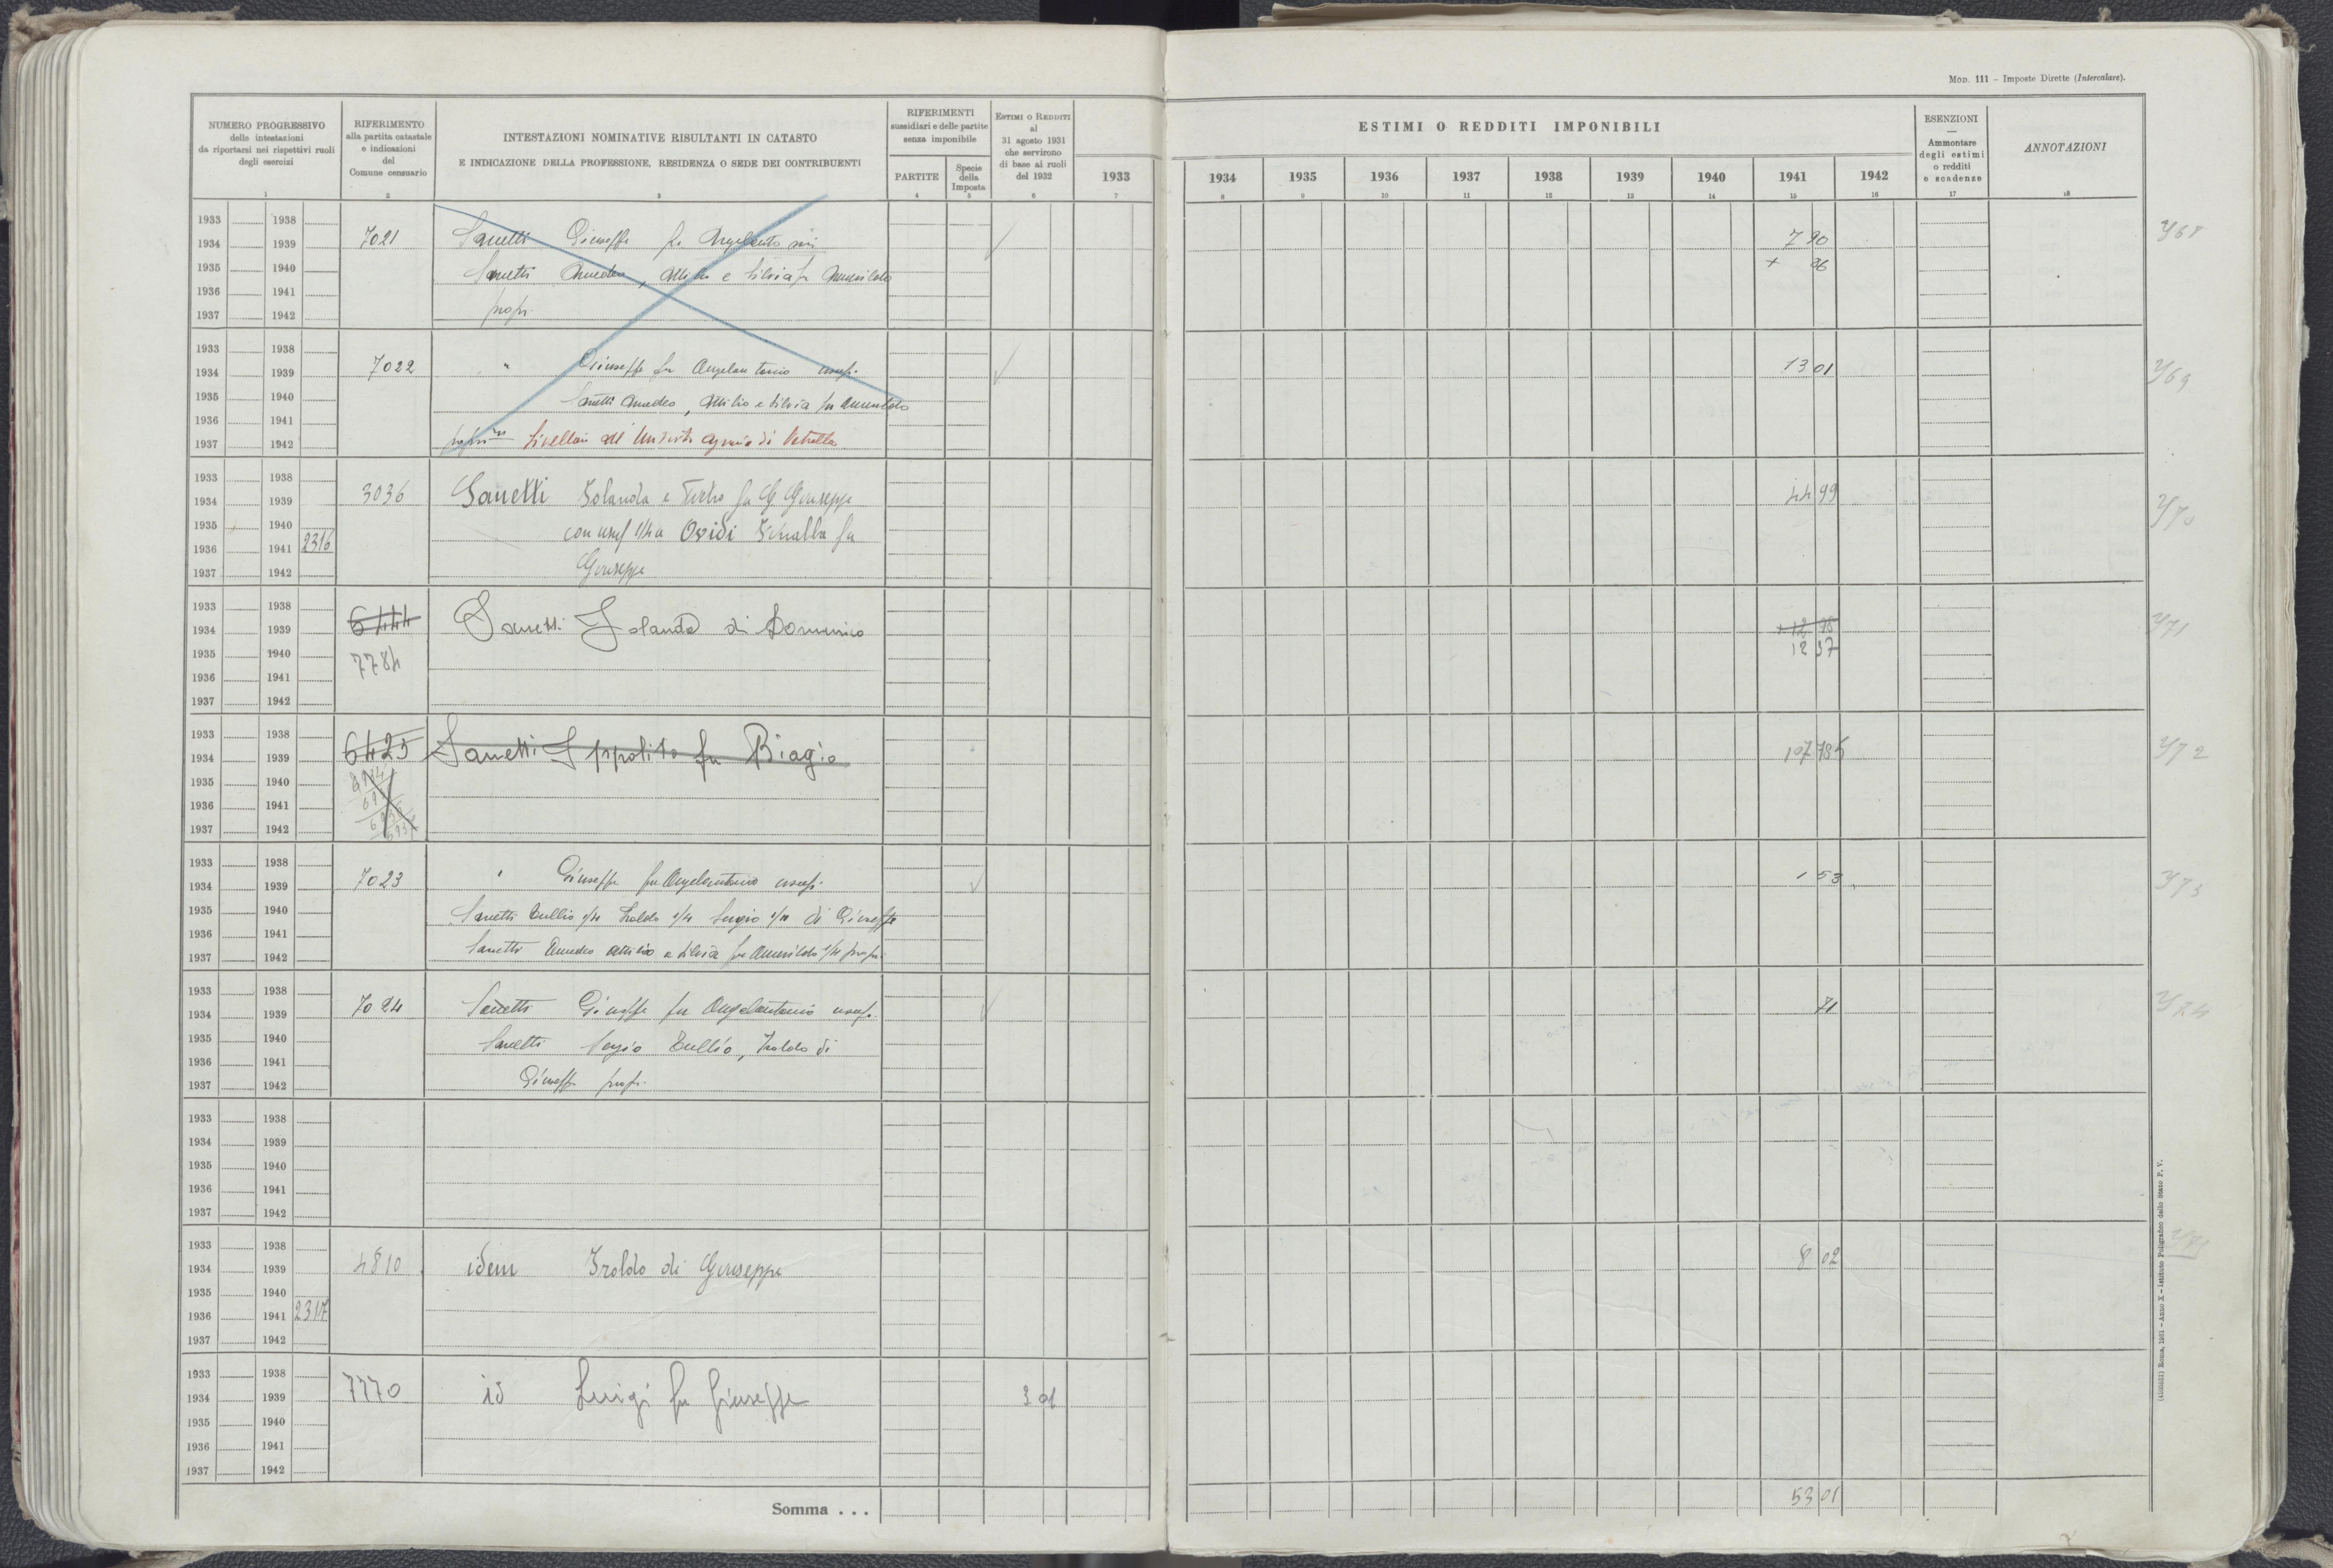 MOD. 111 - Imposte Dirette (Intercalare).
NUMERO PROGRESSIVO delle intestazioni da riportarsi nei rispettivi ruoli degli esercizi
RIFERIMENTO alla partita catastale e indicazioni del Comune censuario
INTESTAZIONI NOMINATIVE RISULTANTI IN CATASTO
E INDICAZIONE DELLA PROFESSIONE, RESIDENZA O SEDE DEI CONTRIBUENTI
RIFERIMENTI sussidiari e delle partite senza imponibile
PARTITE
Specie della Imposta
ESTIMI O REDDITI al 31 agosto 1931 che servirono di base ai ruoli del 1932
ESTIMI O REDDITI IMPONIBILI
1933 1934 1935 1936 1937 1938 1939 1940 1941 1942
ESENZIONI — Ammontare degli estimi o redditi e scadenze
ANNOTAZIONI
1 2 3 4 5 6 7 8 9 10 11 12 13 14 15 16 17 18
1933 1938
1934 1939 7021 Sanetti Giuseppe fu 7 90
1935 1940 Sanetti Amedeo, Attilio e Silvia fu + 26
1936 1941 propr.
1937 1942
1933 1938
1934 1939 7022 " Giuseppe fu Angelantonio usuf. 13 01
1935 1940 Sanetti Amedeo, Attilio e Silvia fu
1936 1941
1937 1942 Livellari all' di Vetralla
1933 1938
1934 1939 3036 Sanetti Iolanda e fu Giuseppe 44 99
1935 1940 con usuf 1/4 a Ovidi fu
1936 1941 2316
1937 1942 Giuseppe
1933 1938
1934 1939 6444 Sanetti Iolanda di Domenico
1935 1940 7784 12 37
1936 1941
1937 1942
1933 1938
1934 1939 6425 Sanetti Ippolito fu Biagio
1935 1940
1936 1941
1937 1942
1933 1938
1934 1939 7023 " Giuseppe fu Angelantonio usuf. 1 53
1935 1940 Sanetti Tullio 1/4 Iroldo 1/4 Sergio 1/4 di Giuseppe
1936 1941
1937 1942 Sanetti Amedeo Attilio e Silvia fu 1/4 propr.
1933 1938
1934 1939 7024 Sanetti Giuseppe fu Angelantonio usuf. 71
1935 1940 Sanetti Sergio Tullio, Iroldo di
1936 1941
1937 1942 Giuseppe propr.
1933 1938
1934 1939
1935 1940
1936 1941
1937 1942
1933 1938
1934 1939 4810 idem Iroldo di Giuseppe 8 02
1935 1940
1936 1941 2317
1937 1942
1933 1938
1934 1939 7770 id Luigi fu Giuseppe 3 01
1935 1940
1936 1941
1937 1942
Somma . . . 53 01
Roma, 1931 - Anno X - Istituto Poligrafico dello Stato P. V.